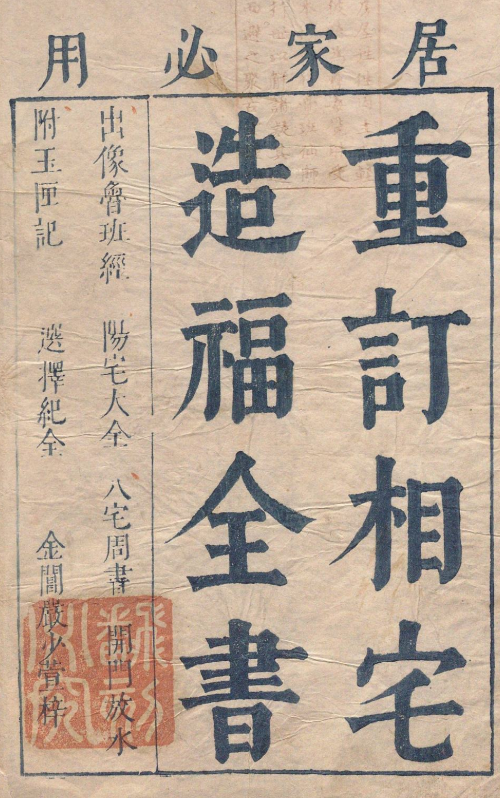 居家必用
重訂相宅
造福全書
出像魯班經 陽宅大全 八宅周書 開門放水
附玉匣記 選擇紀全 金閶嚴少萱梓